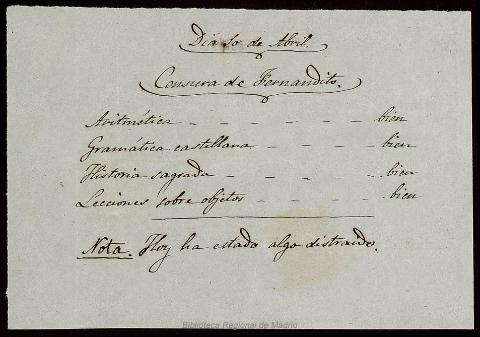 Día 10 de Abril.
Censura de Fernandito.
Aritmética - - - - - - bien
Gramática castellana - - - - bien
Historia sagrada - - - - - bien
Lecciones sobre objetos - - - - bien
Nota. Hoy ha estado algo distraido.
Biblioteca Regional de Madrid